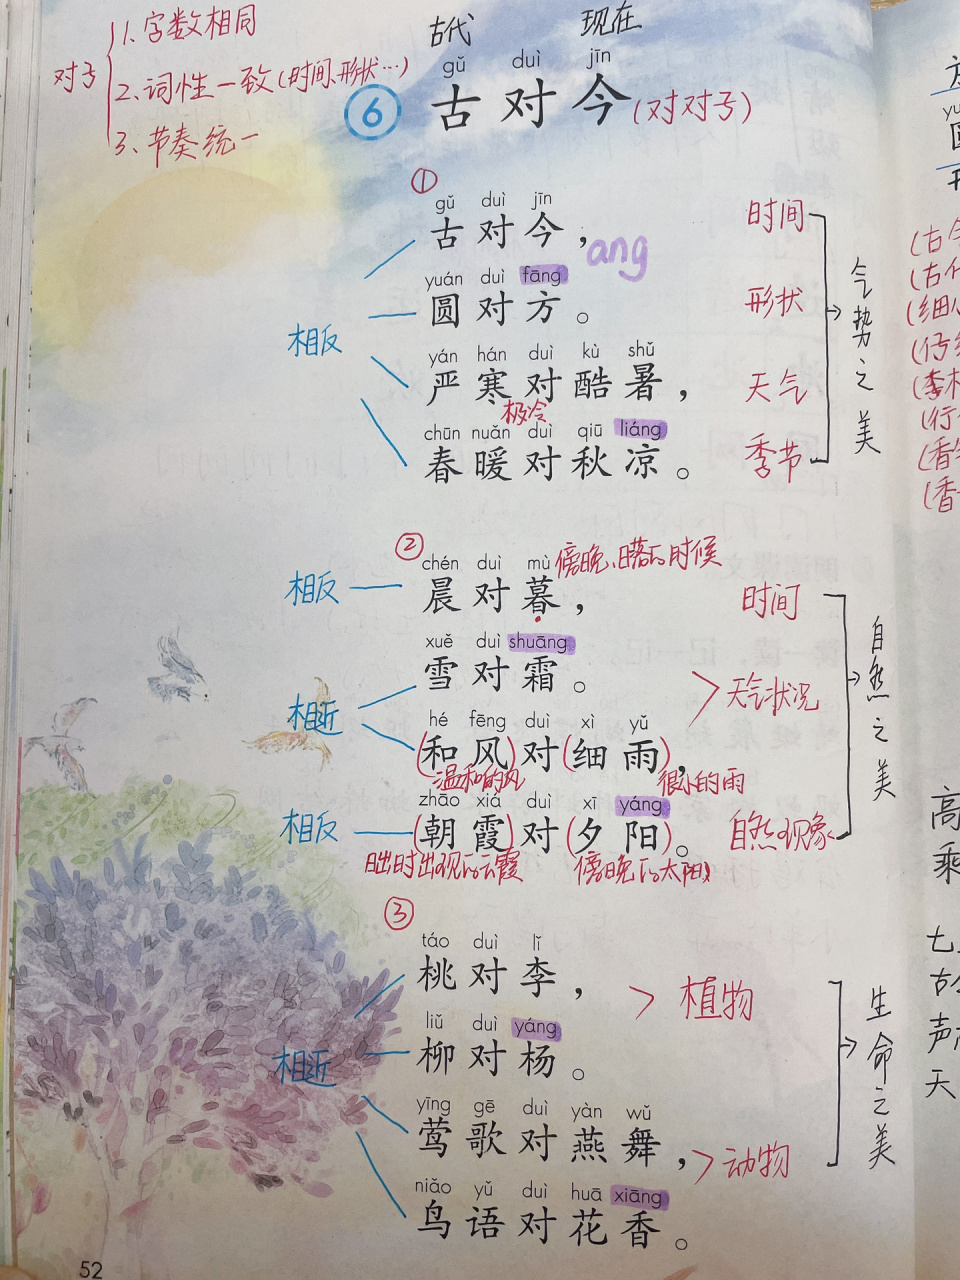 对子
1、字数相同
2、词性一致(时间、形状…)
3、节奏统一
古代 现在
gǔ duì jīn
6 古对今(对对子)
①
gǔ duì jīn
古对今，
ang
时间
yuán duì fāng
圆对方。
形状
相反
yán hán duì kù shǔ
严寒对酷暑，
极冷
天气
chūn nuǎn duì qiū liáng
春暖对秋凉。
季节
气势之美
②
chén duì mù
晨对暮，
傍晚、日落的时候
相反
时间
xuě duì shuāng
雪对霜。
相近
天气状况
hé fēng duì xì yǔ
(和风)对(细雨)，
温和的风 很小的雨
zhāo xiá duì xī yáng
(朝霞)对(夕阳)。
相反
自然现象
日出时出现的云霞 傍晚的太阳
自然之美
③
táo duì lǐ
桃对李，
植物
liǔ duì yáng
柳对杨。
相近
yīng gē duì yàn wǔ
莺歌对燕舞，
动物
niǎo yǔ duì huā xiāng
鸟语对花香。
生命之美
52
高
乘
七
古
声
天